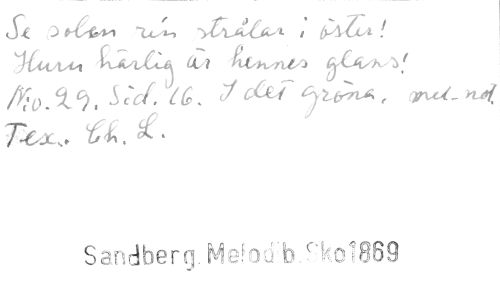 Se solen rin strålar i öster!
Huru härlig är hennes glans!
No. 29. Sid. 16. I det gröna. mel. not.
Tex. Ch. L.
Sandberg. Melod b. Sko1869